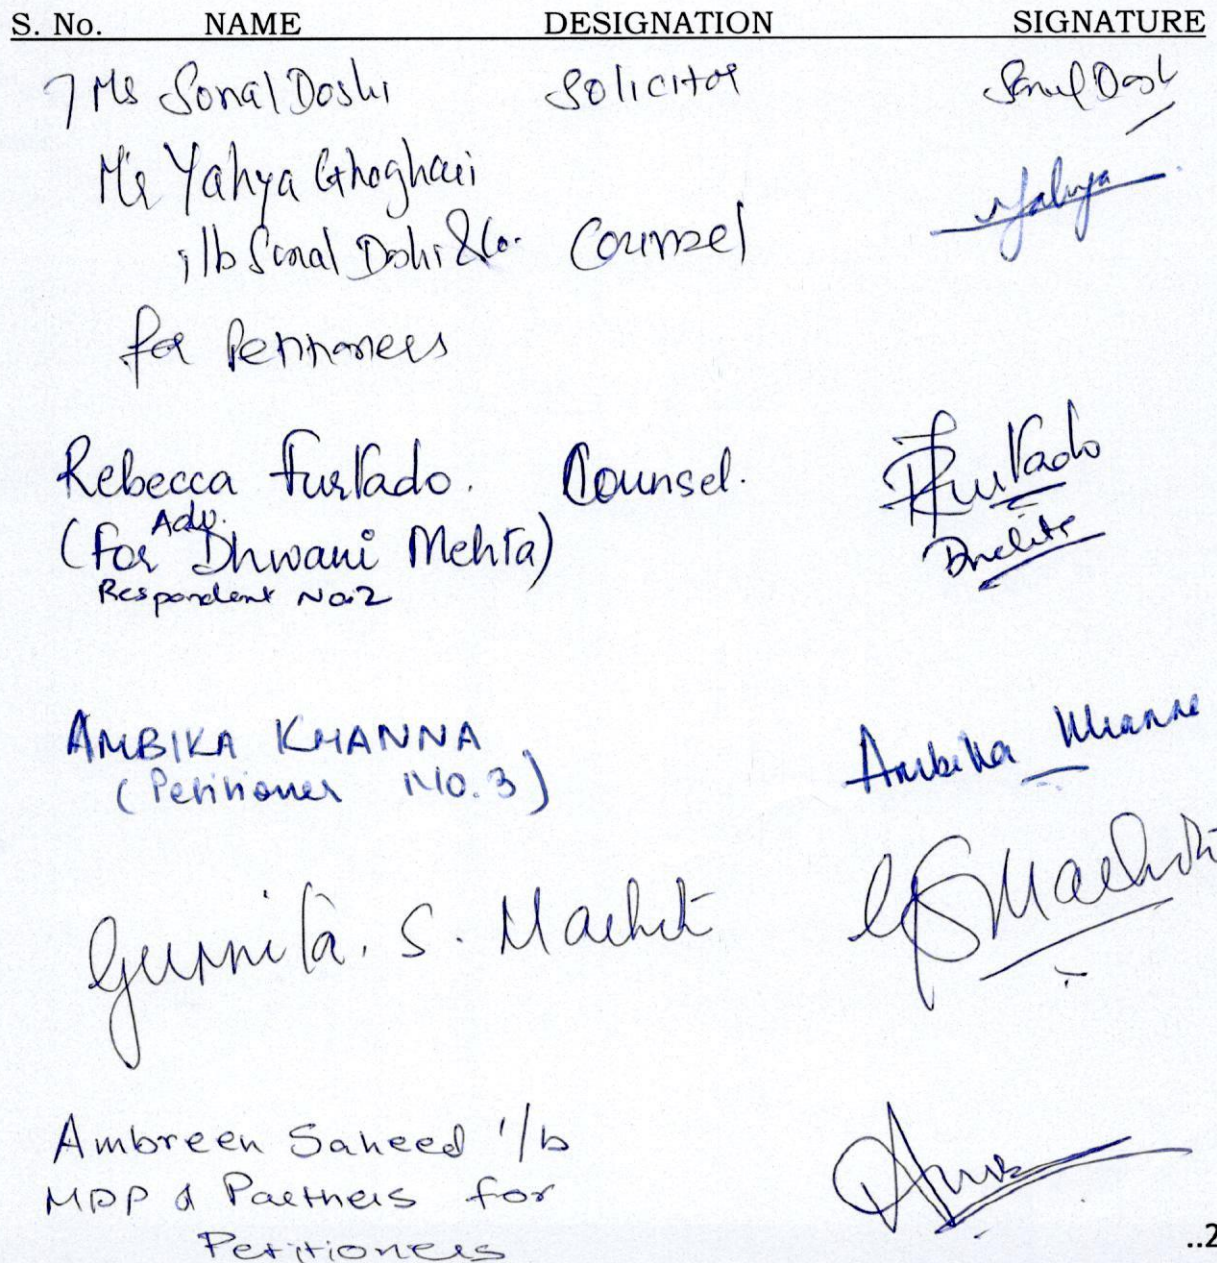 S. No. NAME DESIGNATION SIGNATURE
7 Ms Sonal Doshi Solicitor Sonal Dosh
Mr Yahya Ghoghari Yahya
i/b Sonal Doshi & Co. Counsel
for Petitioners
Rebecca Furtado. Counsel. RFurtado
(For Adv. Dhwani Mehta)
Respondent No.2
AMBIKA KHANNA Ambika Khanna
(Petitioner NO.3)
Gunnita. S. GS
Ambreen Saheed i/b
MDP & Partners for
Petitioners
..2